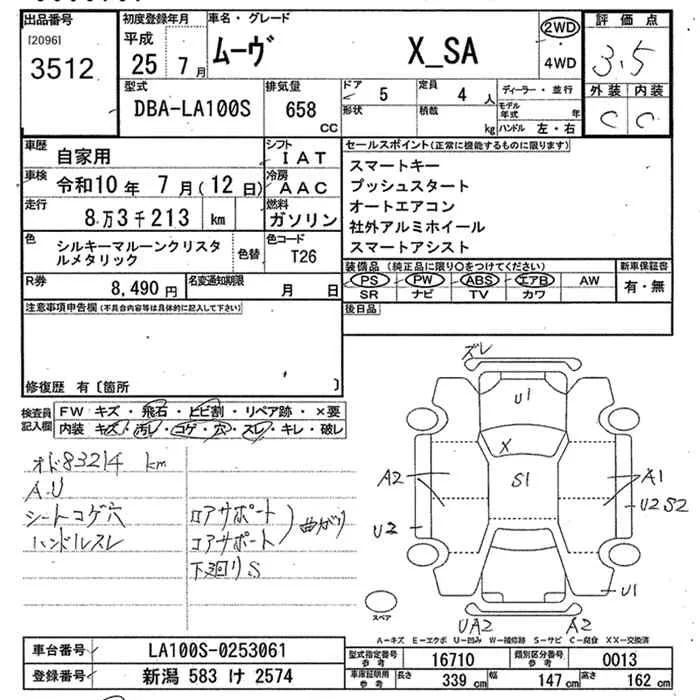 出品番号
[2096]
3512
初度登録年月
平成
25 7月
車名・グレード
ムーヴ X_SA
2WD
4WD
評価点
3.5
外装 内装
C C
型式
DBA-LA100S
排気量
658
CC
ドア 5
形状
定員 4 人
積載 kg
ディーラー・並行
モデル年式 年
ハンドル 左・右
車歴 自家用
シフト IAT
車検 令和10年 7月(12日)
冷房 AAC
走行 8万3千213 km
燃料 ガソリン
色 シルキーマルーンクリスタルメタリック
色替
色コード T26
R券 8,490円
名変通知期限 月 日
セールスポイント(正常に機能するものに限ります)
スマートキー
プッシュスタート
オートエアコン
社外アルミホイール
スマートアシスト
装備品(純正品に限り○をつけてください)
新車保証書
PS PW ABS エアB AW
有・無
SR ナビ TV カワ
後日品
注意事項申告欄(不具合内容等は具体的に記入して下さい)
修復歴 有〔箇所 〕
検査員記入欄
FW キズ・飛石・ヒビ割・リペア跡・×要
内装 キズ・汚レ・コゲ・穴・スレ・キレ・破レ
オド83214 km
A.U
シートコゲ穴
ハンドルスレ
ロアサポート
コアサポート
曲がり
下廻りS
ズレ
U1
X
S1
A2
U2
A1
U2 S2
U1
UA2
A2
スペア
A－キズ E－エクボ U－凹み W－補修跡 S－サビ C－腐食 XX－交換済
車台番号 LA100S-0253061
登録番号 新潟 583 け 2574
型式指定番号 参考 16710
類別区分番号 参考 0013
車庫証明用 参考
長さ 339 cm
幅 147 cm
高さ 162 cm